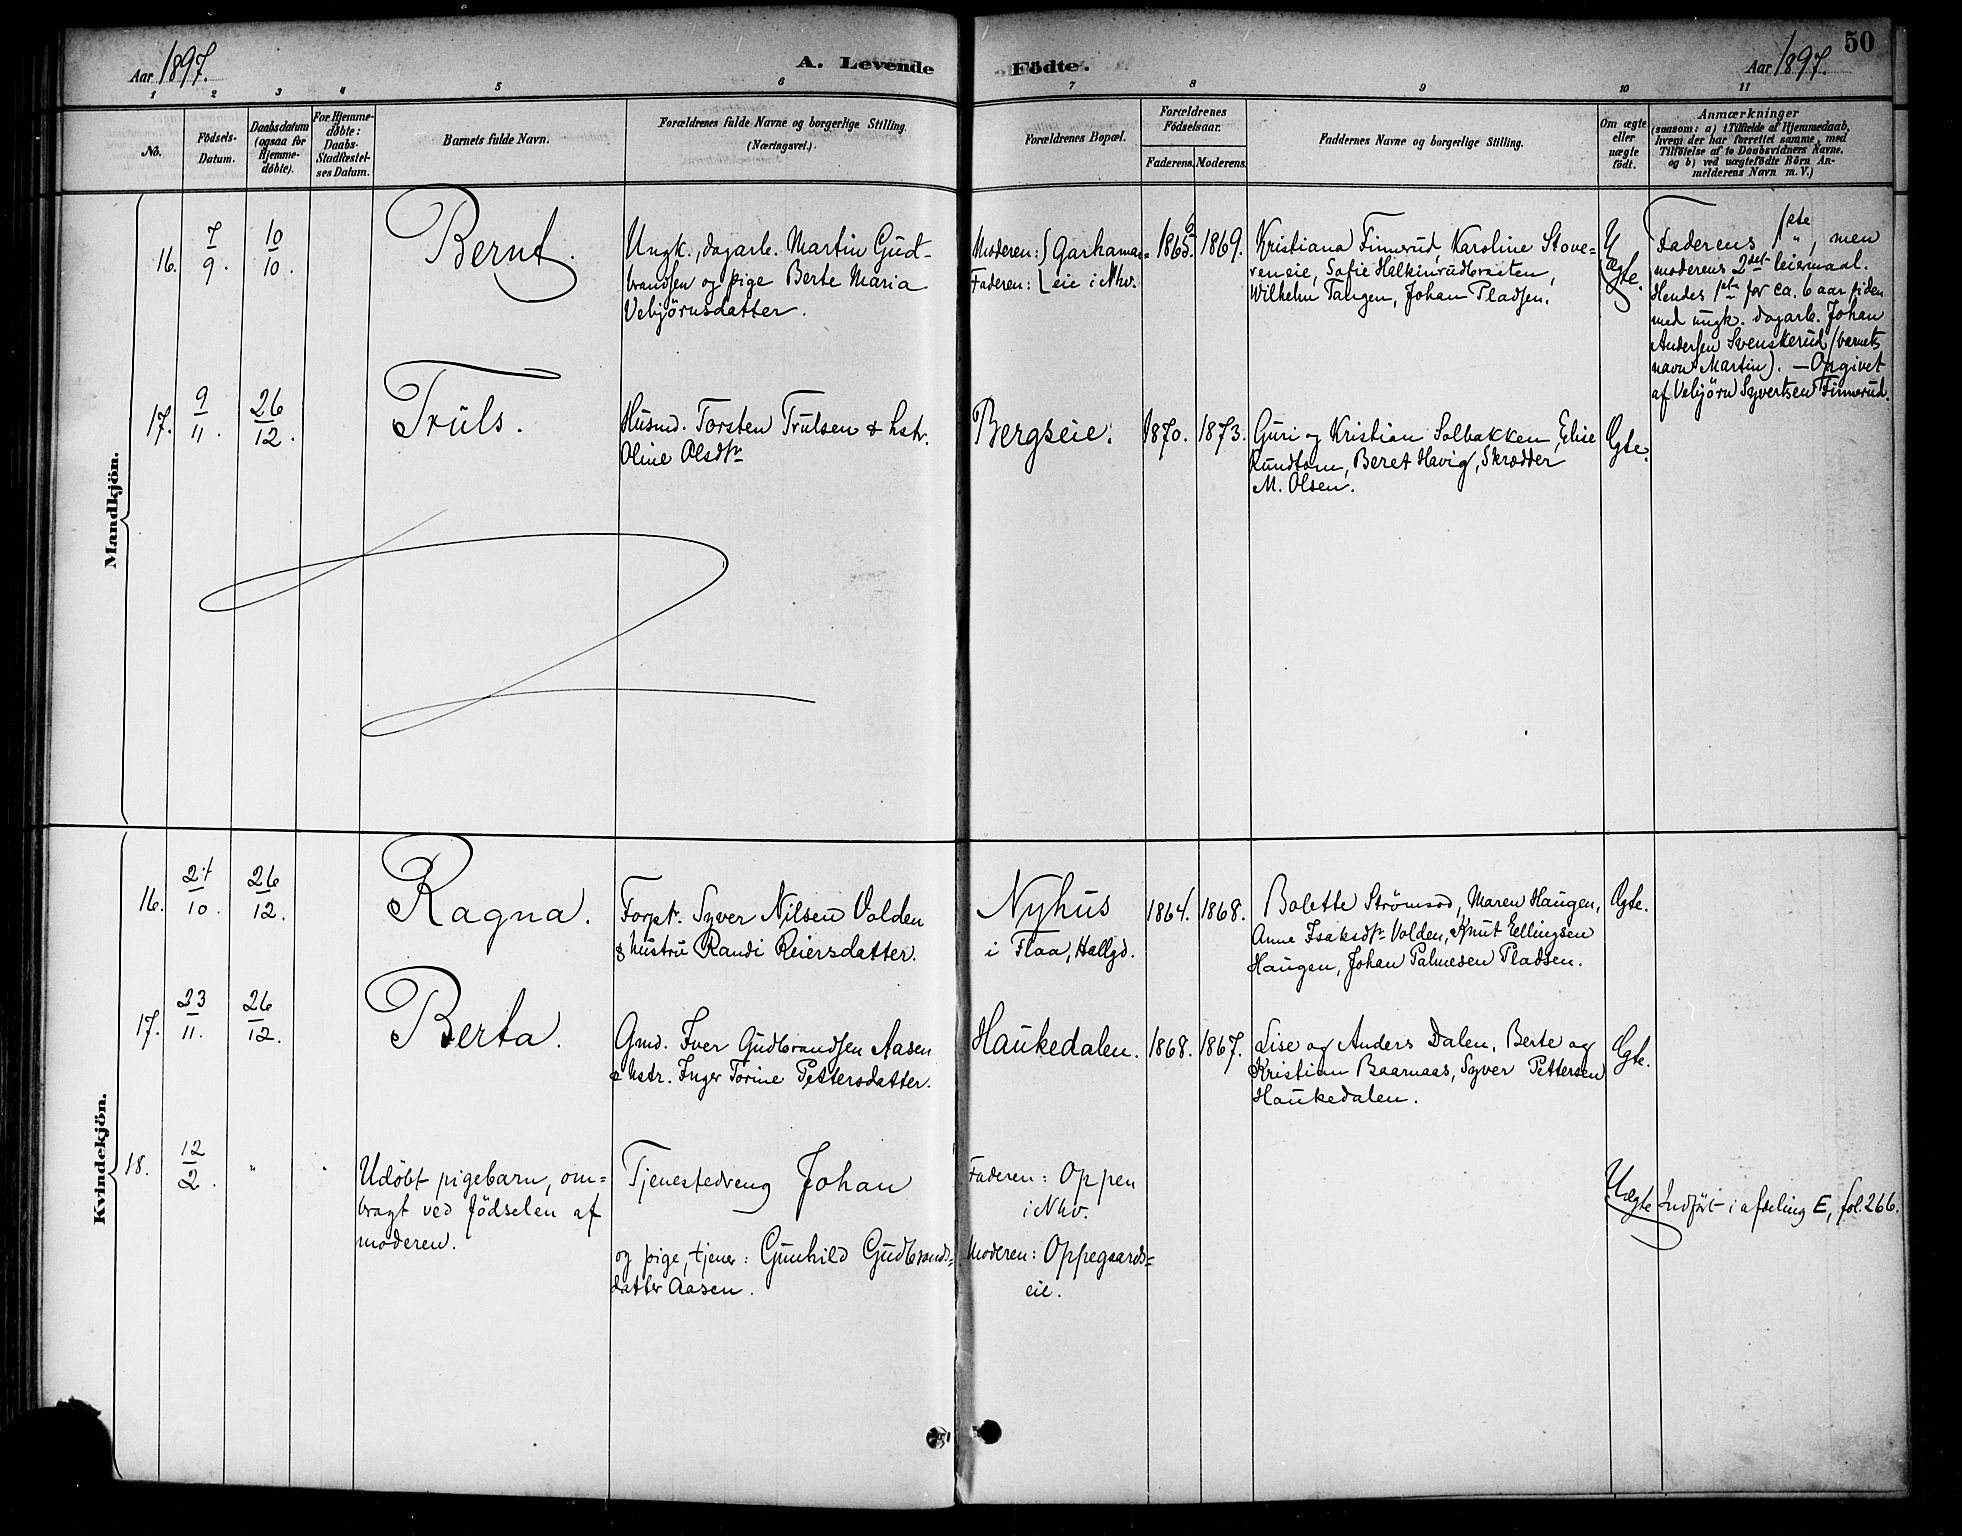 50
Aar 1897.
A. Levende
Födte.
Aar 1897.
1
2
3
4
5
6
7
8
9
10
11
No.
Födsels-
Datum.
Daabsdatum
(ogsaa for
Hjemme-
døbte).
For Hjemme-
døbte:
Daabs-
Stadfæstel-
ses Datum.
Barnets fulde Navn.
Forældrenes fulde Navne og borgerlige Stilling.
(Næringsvei.)
Forældrenes Bopæl.
Forældrenes
Födselsaar.
Faderens.
Moderens.
Faddernes Navne og borgerlige Stilling.
Om ægte
eller
uægte
födt.
Anmærkninger
(saasom: a) i Tilfælde af Hjemmedaab,
hvem der har forrettet samme, med
Tilföielse af to Daabsvidners Navne.
og b) ved uægtefödte Börn An-
melderens Navn m.V.)
Mandkjön.
16.
7
9.
10
10.
Bernt.
Ungk., dagarb. Martin Gud-
brandsen og pige Berte Maria
Vebjörnsdatter.
Moderen: } Garhamar=
Faderen: { eie i Nhv.
1865.
1869.
Kristiana Finnerud, Karoline Stove-
reneie, Sofie Halkinrudbraaten,
Wilhelm Tangen, Johan Pladsen.
Uægte.
Faderens 1ste, men
moderens 2det leiermaal.
Hendes 1ste for ca. 6 aar siden
med ungk. dagarb. Johan
Andersen Svenskerud (barnets
navn Martin). — Opgivet
af Vebjörn Syvertsen Finnerud.
17.
9
11.
26
12.
Truls.
Husmd. Torsten Trulsen & hstr.
Oline Olsdtr
Bergseie.
1870.
1873.
Guri og Kristian Solbakken, Elise
Rundtom, Beret Havig, Skrædder
M. Olsen.
Ægte.
Kvindekjön.
16.
21
10.
26
12.
Ragna.
Forpt. Syver Nilsen Volden
& hustru Randi Reiersdatter.
Nyhus
i Flaa, Hallgd.
1864.
1868.
Bolette Strømsod, Maren Haugen,
Anne Isaksdtr Volden, Knut Ellingsen
Haugen, Johan Palmesen Pladsen.
Ægte.
17.
23
11.
26
12.
Berta.
Gmd. Iver Gudbrandsen Aasen
& hstr. Inger Torine Pettersdatter.
Haukedalen.
1868.
1867.
Lise og Anders Dalen, Berte og
Kristian Baarnaas, Syver Pettersen
Haukedalen.
Ægte.
18.
12
2.
"
"
Udöbt pigebarn, om=
bragt ved födselen af
moderen.
Tjenestedreng Johan
og pige, tjener: Gunhild Gudbrands=
datter Aasen.
Faderen: Oppen
i Nhv.
Moderen: Oppegaards=
eie.
Uægte
Indfört i afdeling E, fol. 266.